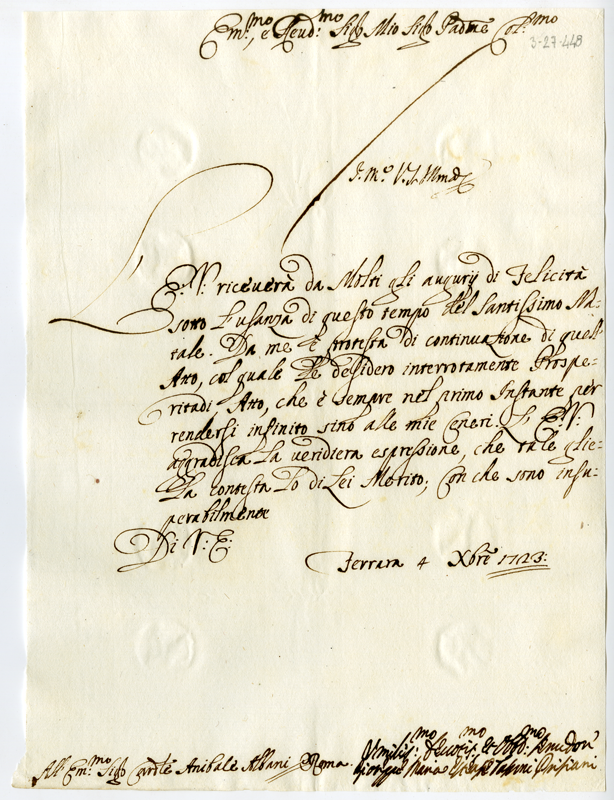 Em:mo, e Reud:mo Sig Mio Sig Padne Col:mo
3-27-448
E: V: riceverà da Molti gli augurij di Felicità
sotto L'usanza di questo tempo del Santissimo Na-
tale. Da me è protesta di continuazione di quell'
Atto, col quale Le desidero interrotamente Prospe-
ritadi, Atto, che è sempre nel primo Instante per
rendersi infinito sino alle mie Ceneri. L' E: V:
aggradisca La veridiera espressione, che tale glie-
La contesta Lo di Lei Merito; Con che sono insu-
perabilmente
Di V: E:
Ferrara 4 Xbre 1723:
Umilis:mo Deuotis:mo et Obb:mo Seruidor
All' Em:mo Sig Cardle Anibale Albani Roma. Giorgio Maria Tassini Cristiani